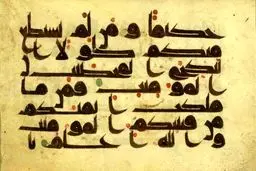 حكيما و من لم يستطع
منكم طولا ا
ن ينكح المحصنت
المومنت فمن ما
ملكت ايمنكم
من فتيتكم المومنت
و الله اعلم با